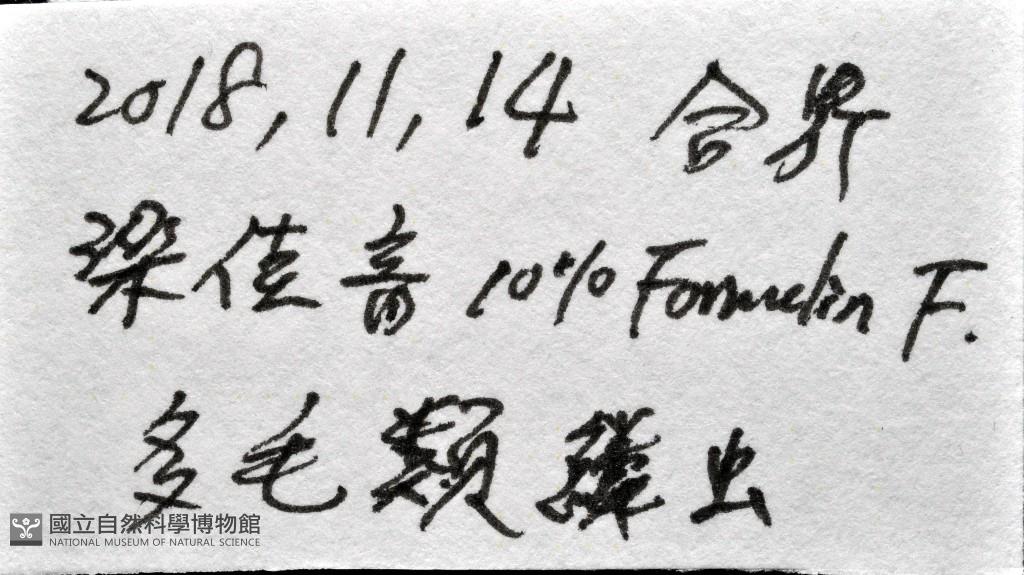 2018, 11, 14 合界
梁佳音 10% Formelin F.
多毛類 虫
國立自然科學博物館
NATIONAL MUSEUM OF NATURAL SCIENCE